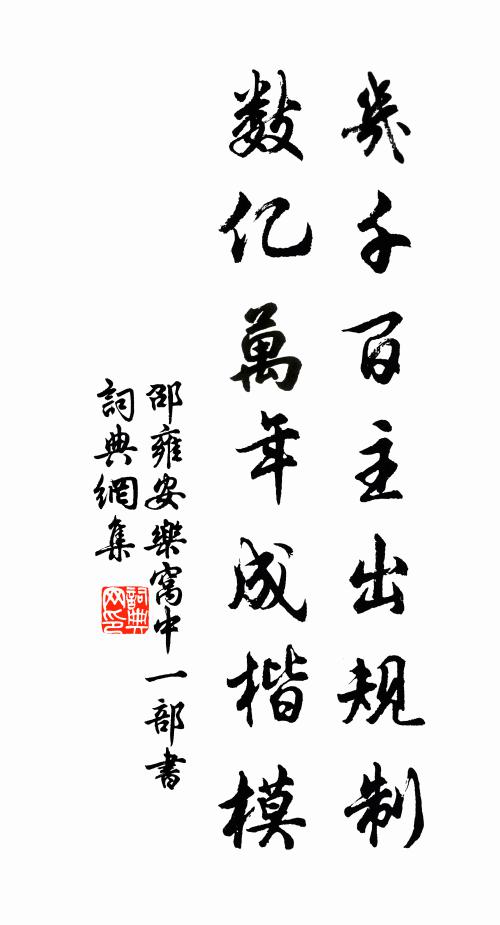 几千百主出規制
数亿萬年成楷模
邵雍安樂窩中一部書
詞典網集
詞典网印